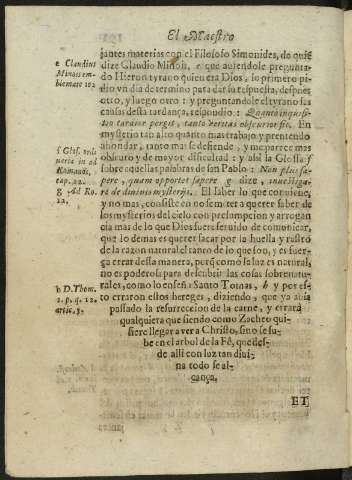 El Maestro
jantes materias con el Filosofo Simonides, de quiē
e Claudius
Minois em-
blemate 102
dize Claudio Minois, e que auiendole pregunta-
do Hieron tyrano quien era Dios, lo primero pi-
dio vn dia de termino para dar su respuesta, despues
otro, y luego otro : y preguntandole el tyrano las
causas desta tardança, respondio : Quanto inquisi-
tius curatur pergit, tanto veritas obscurior fit. En
mysterio tan alto quanto mas trabajo, y pretendo
ahondar, tanto mas se defiende, y me parece mas
obscuro y de mayor dificultad : y assi la Glossa f
f Glos.
in ad
Romanos,
cap. 12.
g Ad Ro.
12.
sobre aquellas palabras de san Pablo : Non plus sa-
pere, quam oportet sapere g dize,
re de diuinis mysterijs. El saber lo que conuiene,
y no mas, consiste en no se meter a querer saber de
los mysterios del cielo con presumpcion y arrogan
cia mas de lo que Dios fuere seruido de comunicar,
que lo demas es querer sacar por la huella y rastro
de la razon natural el tanto de lo que soo, y es fuer-
ça errar desta manera, porq̃ como se luz es natural,
no es poderosa para descubrir las cosas sobrenatu-
rales, como lo enseña Santo Tomas, h y por es-
h D. Thom.
1. p. q. 12.
artic.
to erraron estos hereges, diziendo, que ya auia
passado la resurreccion de la carne, y errará
qualquiera que siendo como Zacheo qui-
siere llegar a ver a Christo, sino se su-
be en el arbol de la Fè, que des-
de alli con luz tan diui-
na todo se al-
cança.
ET